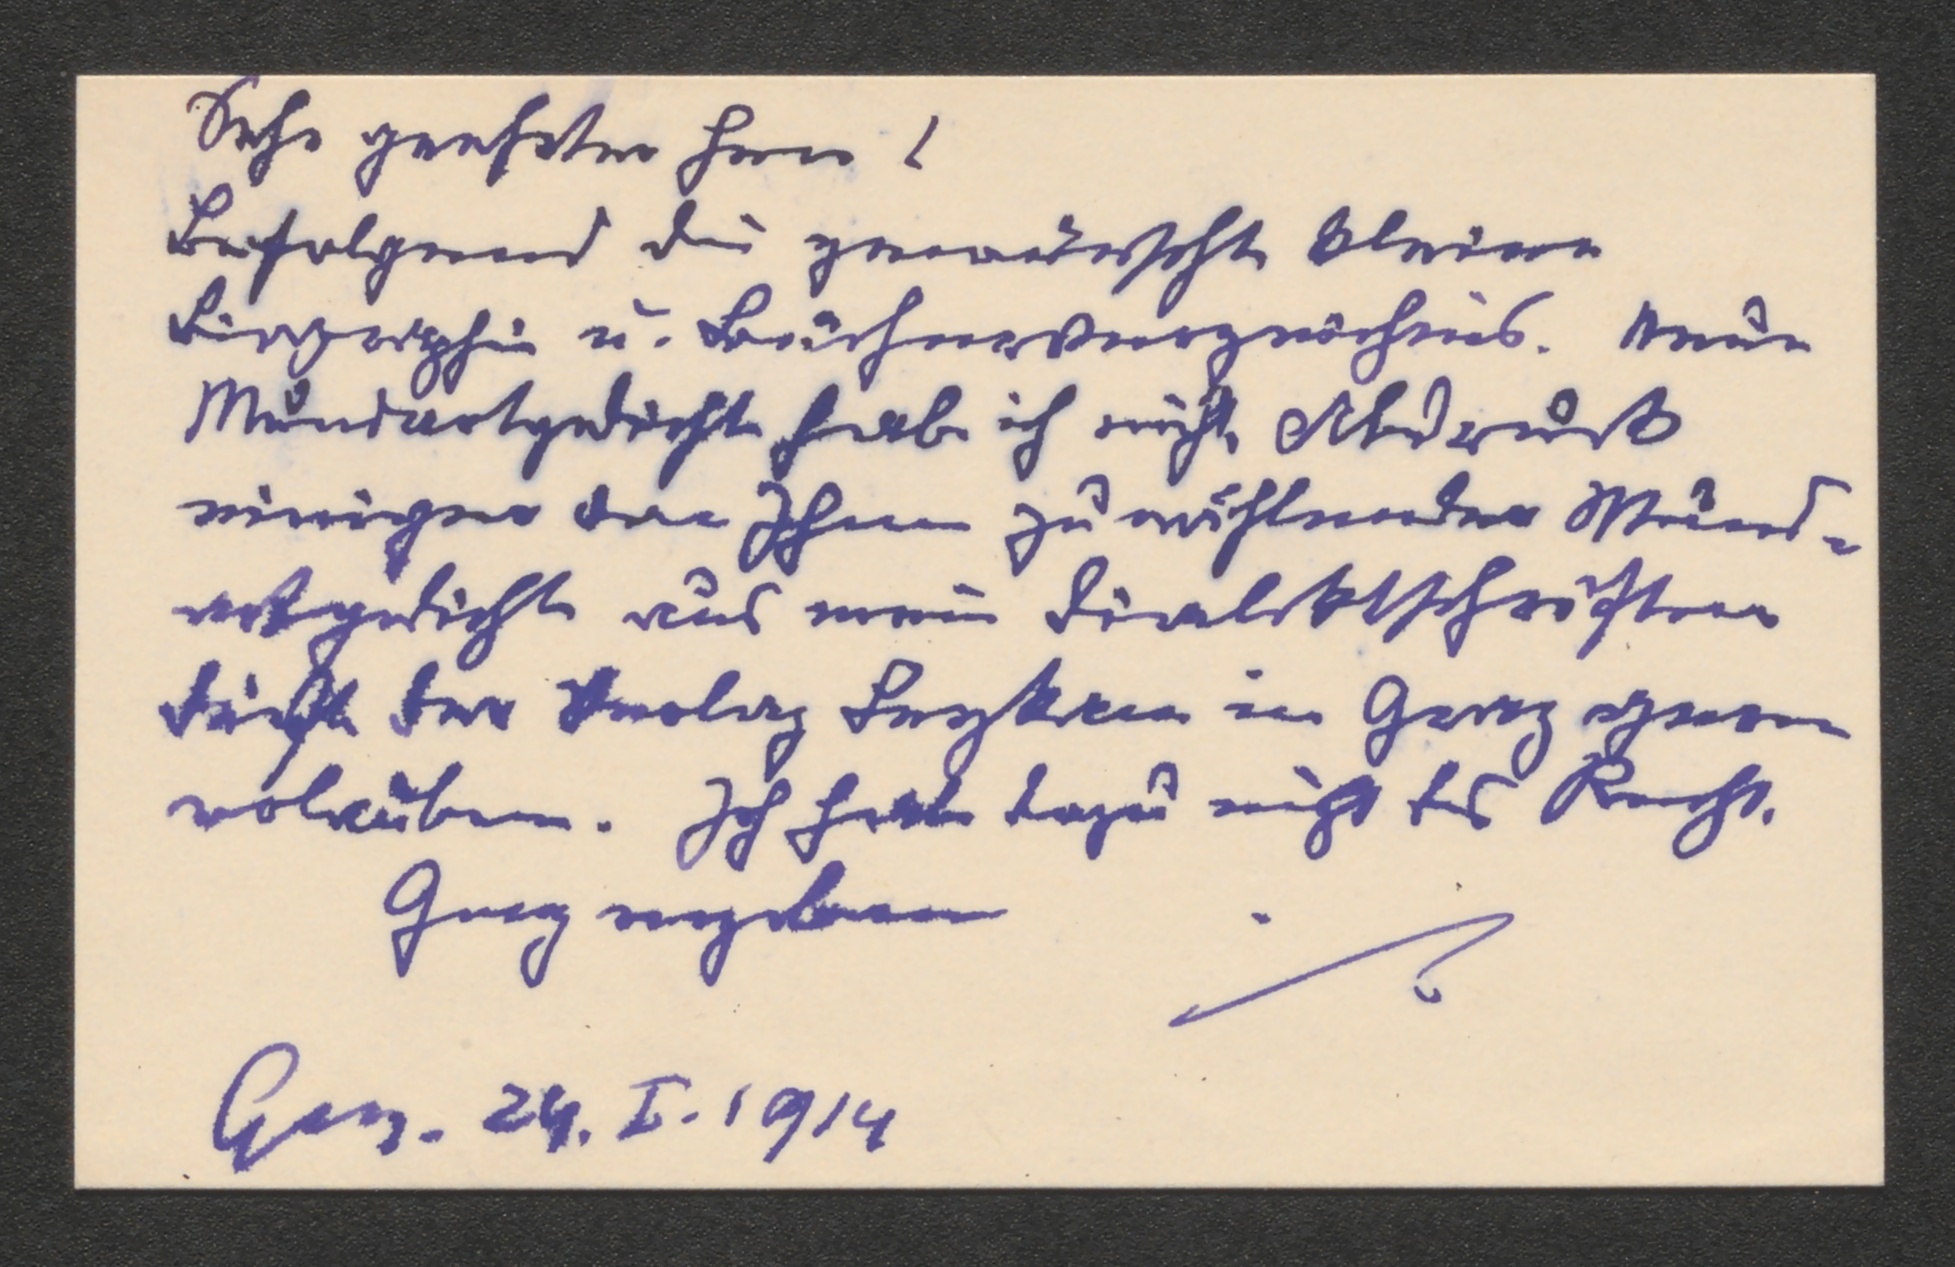 Sehr geehrter Herr!
Beifolgend die gewünschte kleine
Biographie u. Bücherverzeichnis. Neue
Mundartgedichte habe ich nicht. Abdruck
einiger von Ihnen zu wählender Mund-
artgedichte aus mein Dialektschriften
dürfte der Verlag Leykam in Graz gern
erlauben. Ich habe dazu nicht das Recht.
Ganz ergeben
Graz. 24. I. 1914